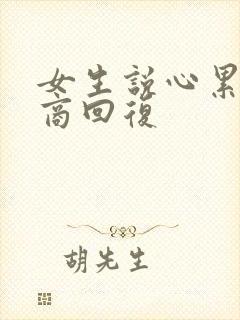 女生説心累
商回復
胡先生